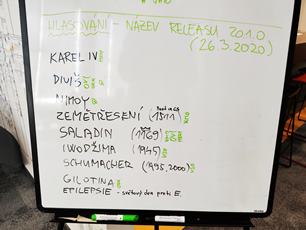 HLASOVÁNÍ - NÁZEV RELEASU 201.0
(26.3.2020)
KAREL IV
DIVIŠ
NIMOY
ZEMĚTŘESENÍ (1511)
SALADIN (1169)
IWODŽIMA (1945)
SCHUMACHER (1995,2000)
GILOTINA
EPILEPSIE - světový den proti E.